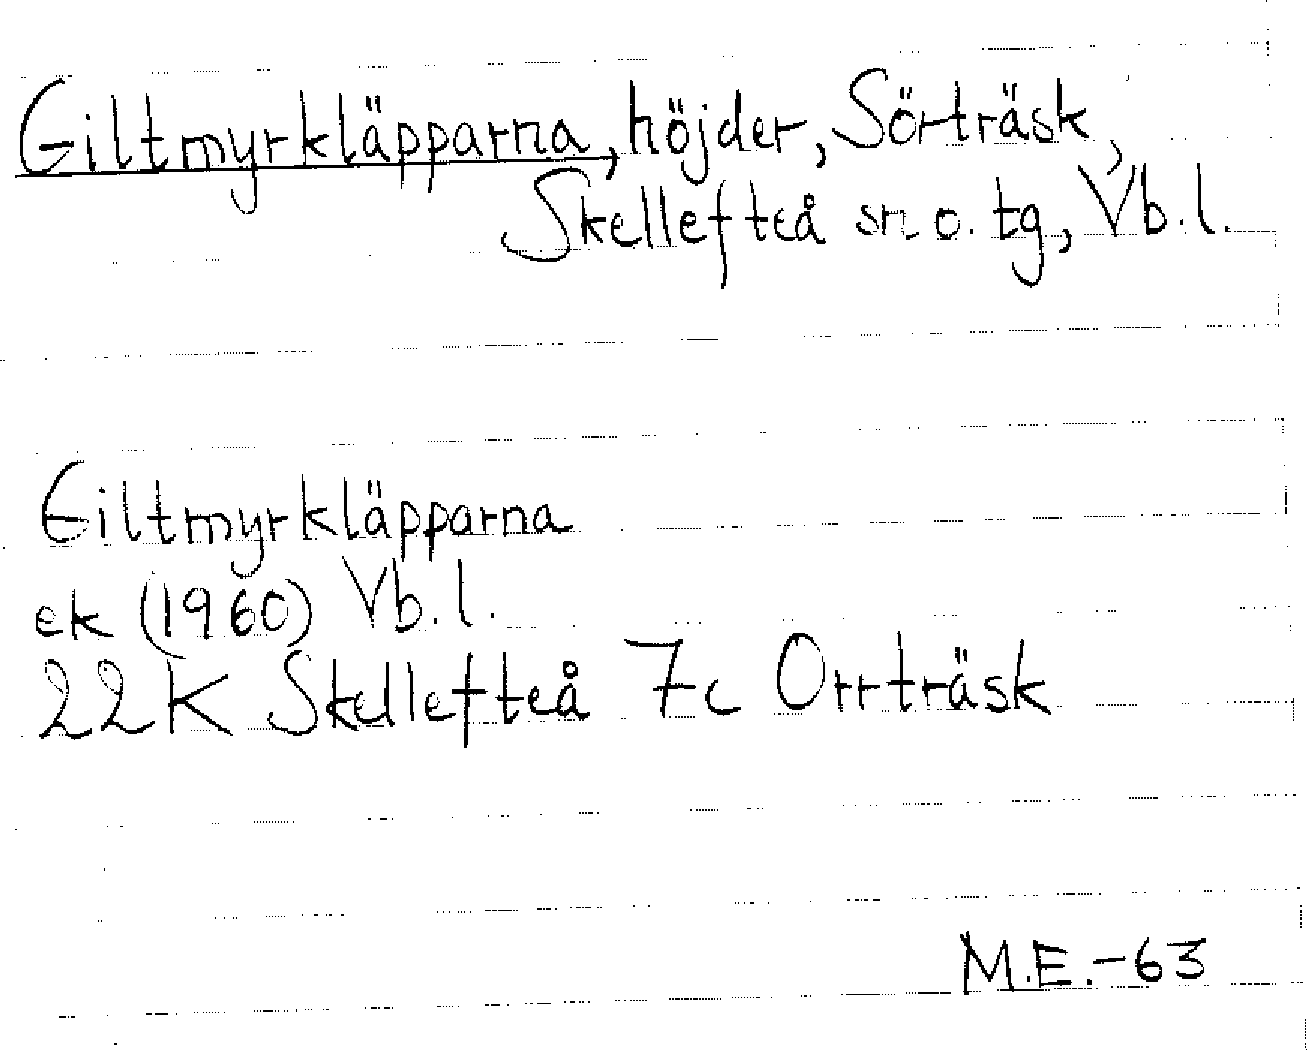 Giltmyrkläpparna, höjder, Sörträsk,
Skellefteå sn o. tg, Vb. l.
Giltmyrkläpparna
ek (1960) Vb. l.
22K Skellefteå 7c Orrträsk
M.E.-63